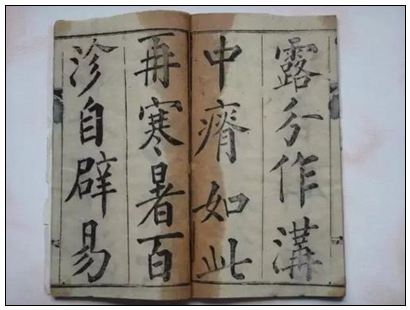 露分作溝
中瘠如此
再寒暑百
沴自辟易